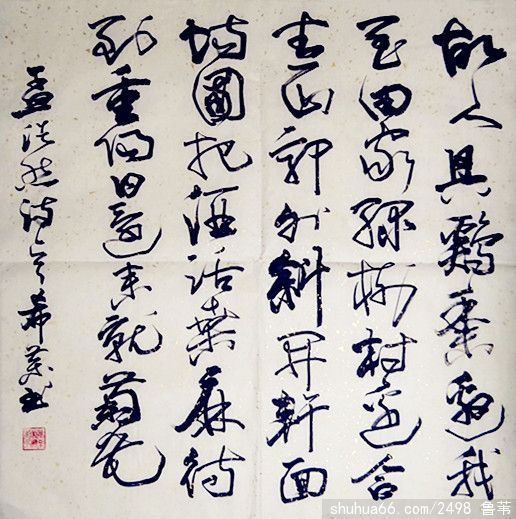 故人具鷄黍邀我
至田家綠樹村邊合
青山郭外斜開軒面
場圃把酒話桑麻待
到重陽日還來就菊花
孟浩然詩 希書
shuhua66.com/2498 鲁苇